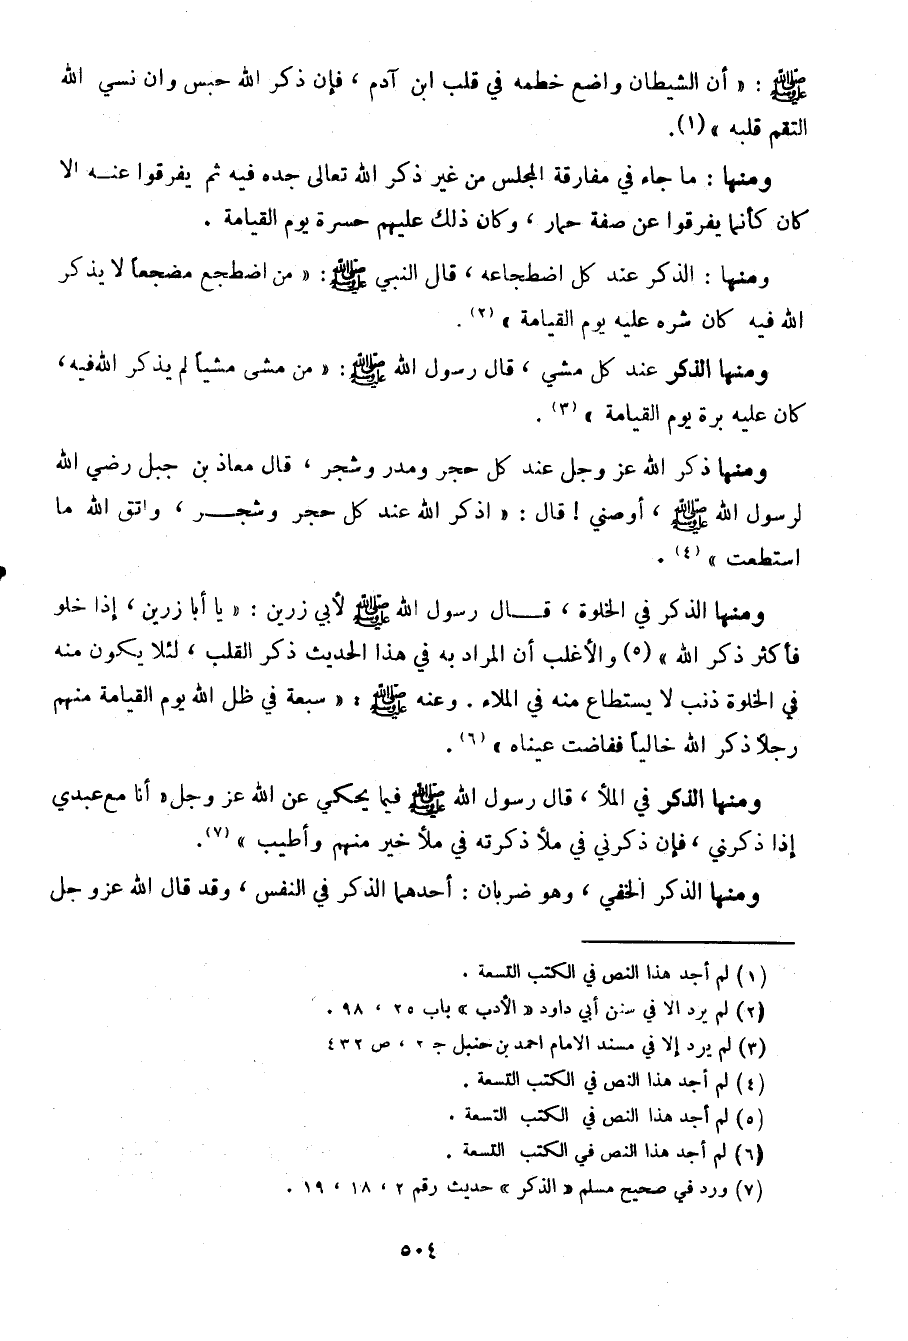 ﷺ : « أن الشيطان واضع خطمه في قلب ابن آدم ، فإن ذكر الله حبس وان نسي الله
التقم قلبه » (١).
ومنها : ما جاء في مفارقة المجلس من غير ذكر الله تعالى جده فيه ثم يفرقوا عنـــه الا
كان كأنما يفرقوا عن صفة حمار ، وكان ذلك عليهم حسرة يوم القيامة .
ومنها : الذكر عند كل اضطجاعه ، قال النبي ﷺ : « من اضطجع مضجعاً لا يذكر
الله فيه كان شره عليه يوم القيامة » (٢) .
ومنها الذكر عند كل مشي ، قال رسول الله ﷺ : « من مشى مشياً لم يذكر الله فيه ،
كان عليه برة يوم القيامة » (٣) .
ومنها ذكر الله عز وجل عند كل حجر ومدر وشجر ، قال معاذ بن جبل رضي الله
لرسول الله ﷺ ، أوصني ! قال : « اذكر الله عند كل حجر وشجـــر ، واتق الله ما
استطعت » (٤) .
ومنها الذكر في الخلوة ، قـــال رسول الله ﷺ لأبي زرين : « يا أبا زرين ، إذا خلو
فأكثر ذكر الله » (٥) والأغلب أن المراد به في هذا الحديث ذكر القلب ، لئلا يكون منه
في الخلوة ذنب لا يستطاع منه في الملاء . وعنه ﷺ : « سبعة في ظل الله يوم القيامة منهم
رجلاً ذكر الله خالياً ففاضت عيناه » (٦) .
ومنها الذكر في الملأ ، قال رسول الله ﷺ فيما يحكي عن الله عز وجل « أنا مع عبدي
إذا ذكرني ، فإن ذكرني في ملأ ذكرته في ملأ خير منهم وأطيب » (٧).
ومنها الذكر الخفي ، وهو ضربان : أحدهما الذكر في النفس ، وقد قال الله عز وجل
(١) لم أجد هذا النص في الكتب التسعة .
(٢) لم يرد الا في سنن أبي داود « الأدب » باب ٢٥ ، ٩٨ .
(٣) لم يرد إلا في مسند الامام احمد بن حنبل ج ٢ ، ص ٤٣٢
(٤) لم أجد هذا النص في الكتب التسعة .
(٥) لم أجد هذا النص في الكتب التسعة .
(٦) لم أجد هذا النص في الكتب التسعة .
(٧) ورد في صحيح مسلم « الذكر » حديث رقم ٢ ، ١٨ ، ١٩ .
٥٠٤